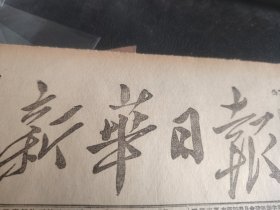 新華日報